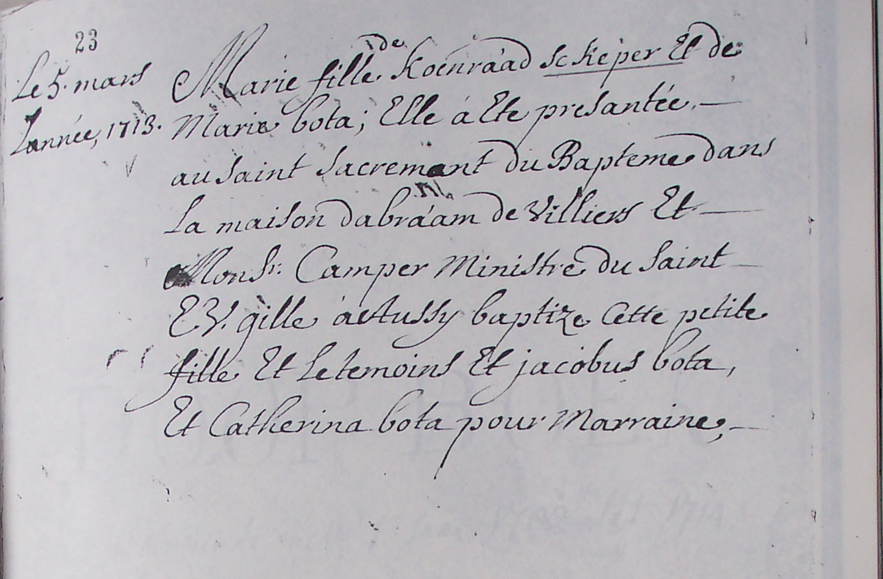 23
Le 5. mars
Lannée, 1713.
de
Marie fille Koenráad sckeper Et de
Maria bota; Elle á Ete presantée. —
au saint sacremant du Bapteme dans
La maison dabráam de Villiers Et —
Monsr. Camper Ministre du saint —
EV. gille baptize Cette petite
fille Et Le temoins Et jacobus bota,
Et Catherina bota pour Marraine, —